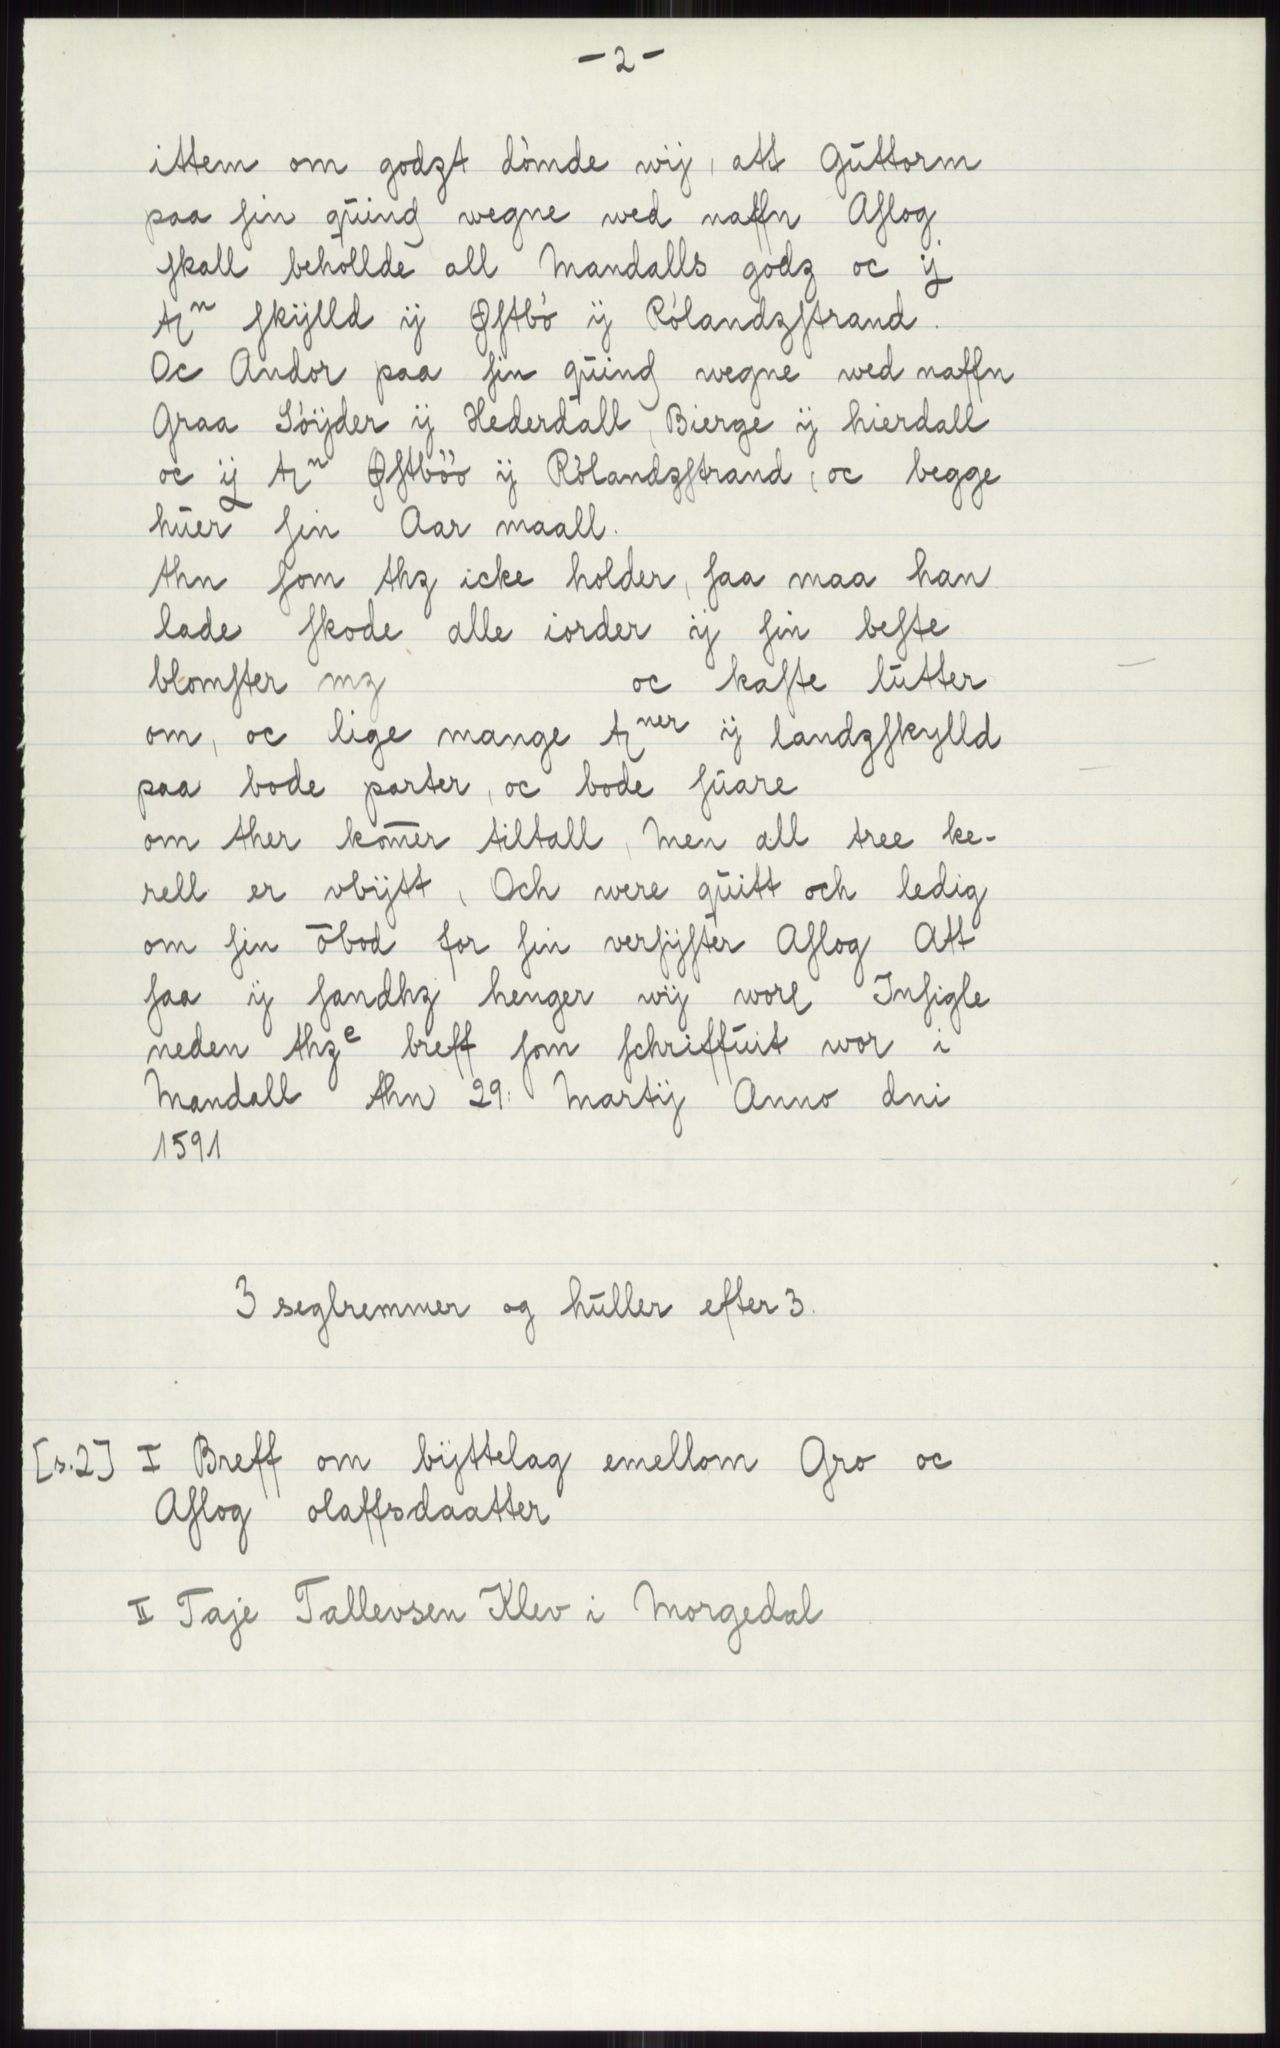 - 2 -
ittem om godzt dömde wij, att Guttorm
paa sin quind wegne wed naffn Aslog
skall behollde all Mandalls godz oc ij
tn skylld ij Østbö ij Rölandzstrand.
Oc Andor paa sin quind wegne wed naffn
Graa Söyder ij Hederdall, Bierge ij hierdall
oc ij tn Østböö ij Rölandzstrand, oc begge
huer sin Aar maall.
thn som thz icke holder, saa maa han
lade skode alle iorder ij sin beste
blomster mz oc kaste lutter
om, oc lige mange tner ij landzskylld
paa bode parter, oc bode suare
om ther kom̅er tiltall, Men all tree ke-
rell er vbytt, Och were quitt och ledig
om sin ōbod for sin versyster Aslog Att
saa ij sandhz henger wij wore Insigle
neden thze breff som schriffuit wor i
Mandall thn 29: Martij Anno dni
1591
3 seglremmer og huller efter 3.
[s.2] I Breff om byttelag emellom Gro oc
Aslog olaffsdaatter
II Taje Tallevsen Klev i Morgedal